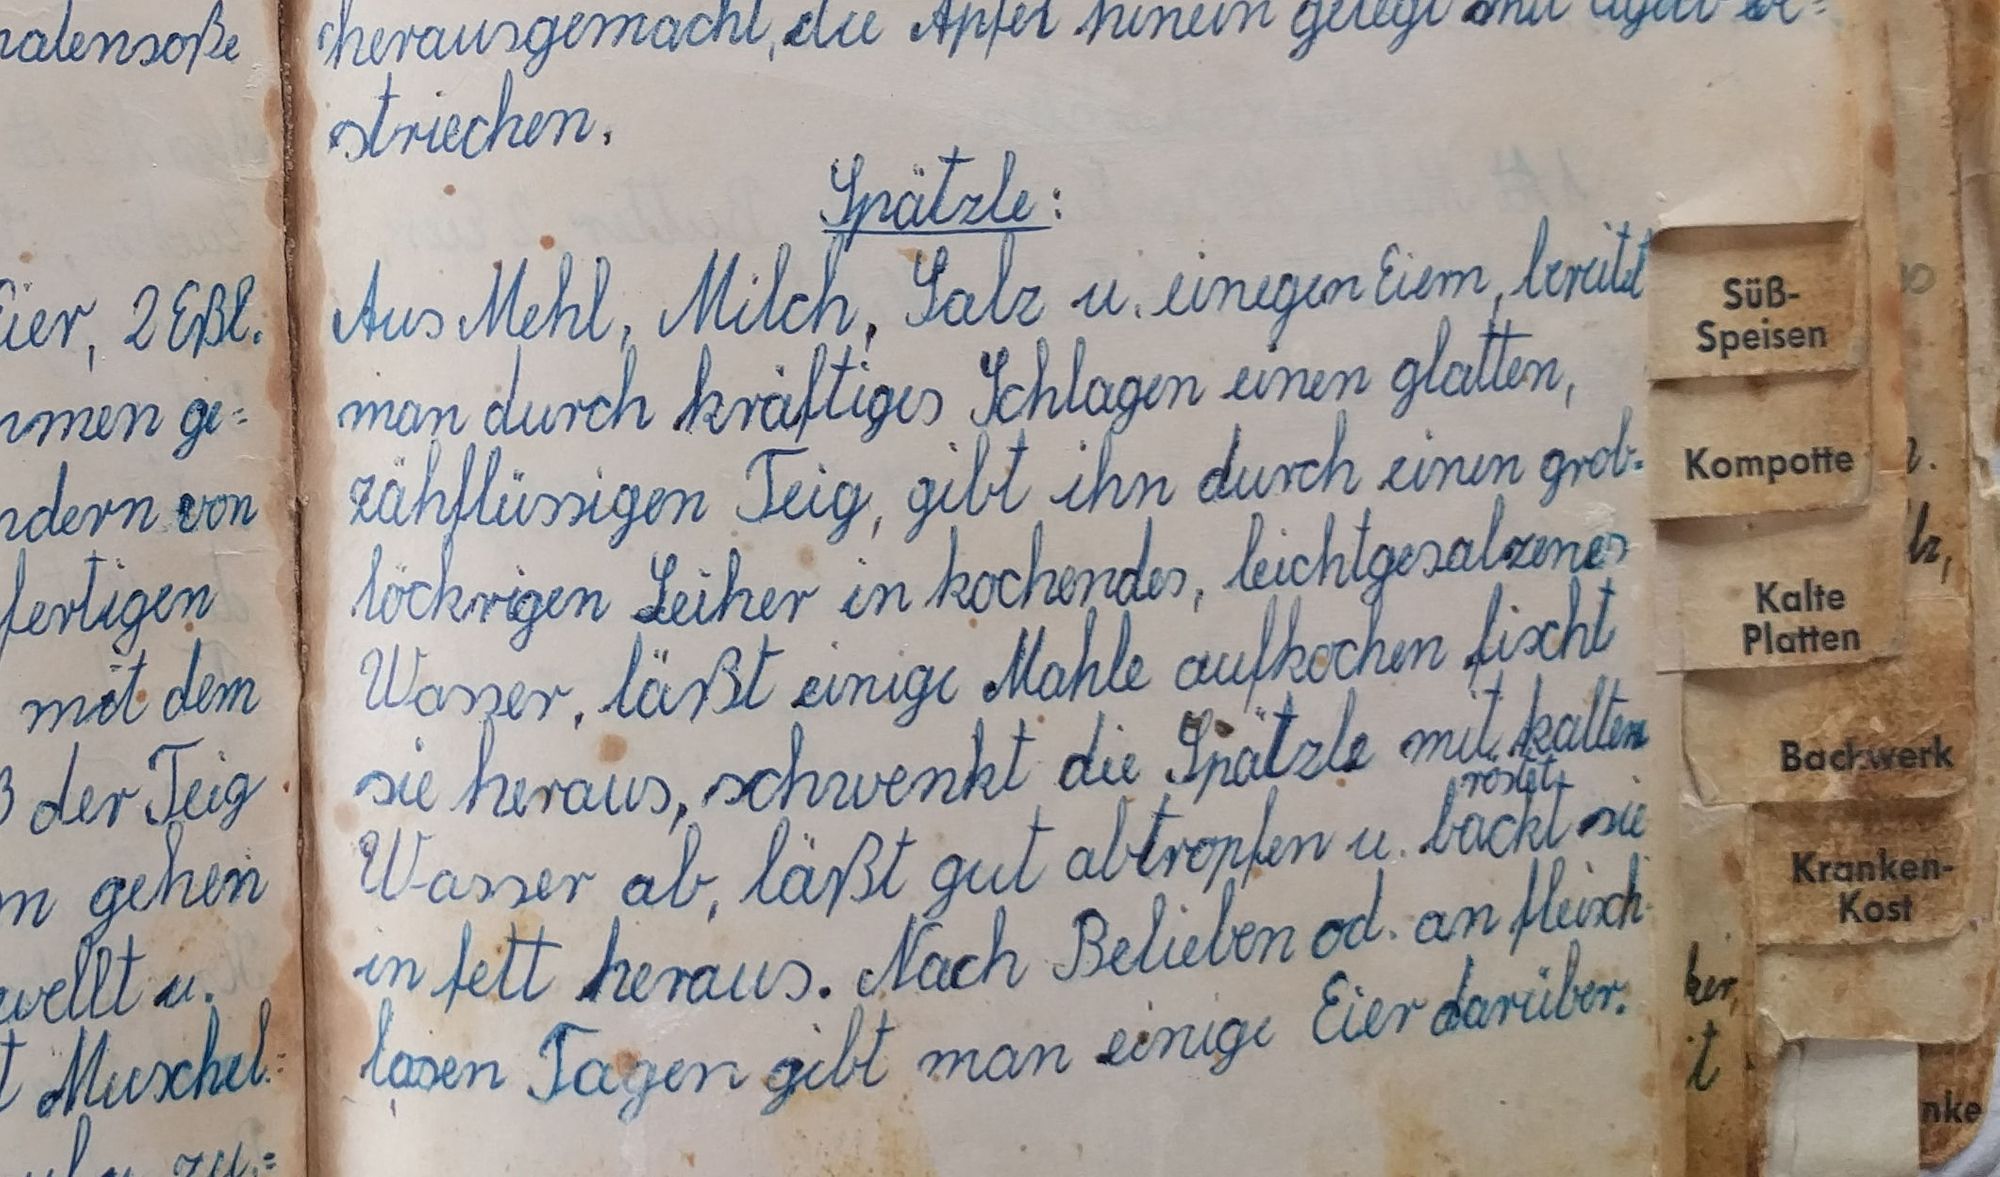 alensoße
Eier, 2 Eßl.
men ge=
ndern von
fertigen
mit dem
der Teig
gehen
wellt u.
Muschel=
zu=
herausgemacht, die Äpfel hinein gelegt
striechen.
Spätzle:
Aus Mehl, Milch, Salz u. einegen Eiern, bereitet
man durch kräftiges Schlagen einen glatten,
zähflüssigen Teig, gibt ihn durch einen grob-
löckrigen Seiher in kochendes, leichtgesalzenes
Wasser, läßt einige Mahle aufkochen fischt
sie heraus, schwenkt die Spätzle mit kalten
röstet
Wasser ab, läßt gut abtropfen u. backt sie
in fett heraus. Nach Belieben od. an fleisch-
losen Tagen gibt man einige Eier darüber.
Süß-
Speisen
Kompotte
Kalte
Platten
Backwerk
Kranken-
Kost
nke